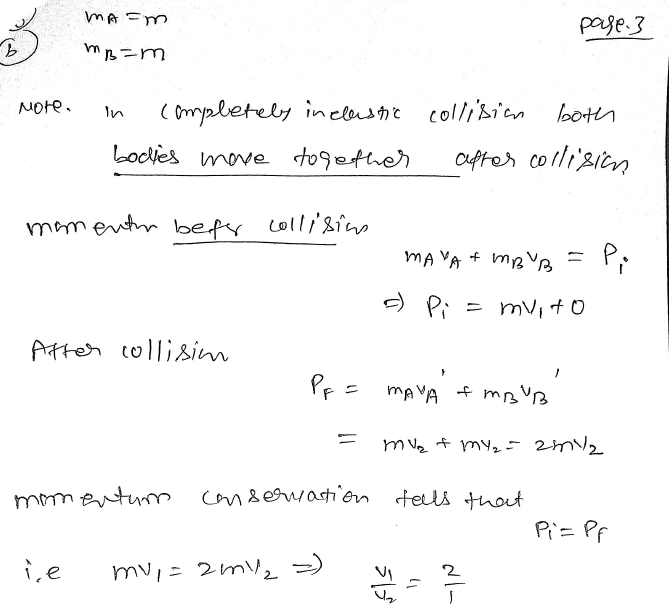 mA = m
page.3
b
mB = m
Note. In completely inelastic collision both
bodies move together after collision
momentum before collision
mA vA + mB vB = Pi
=> Pi = mv1 + 0
After collision
PF = mA vA' + mB vB'
= mv2 + mv2 = 2mv2
momentum conservation tells that
Pi = Pf
i.e mv1 = 2mv2 => v1/v2 = 2/1